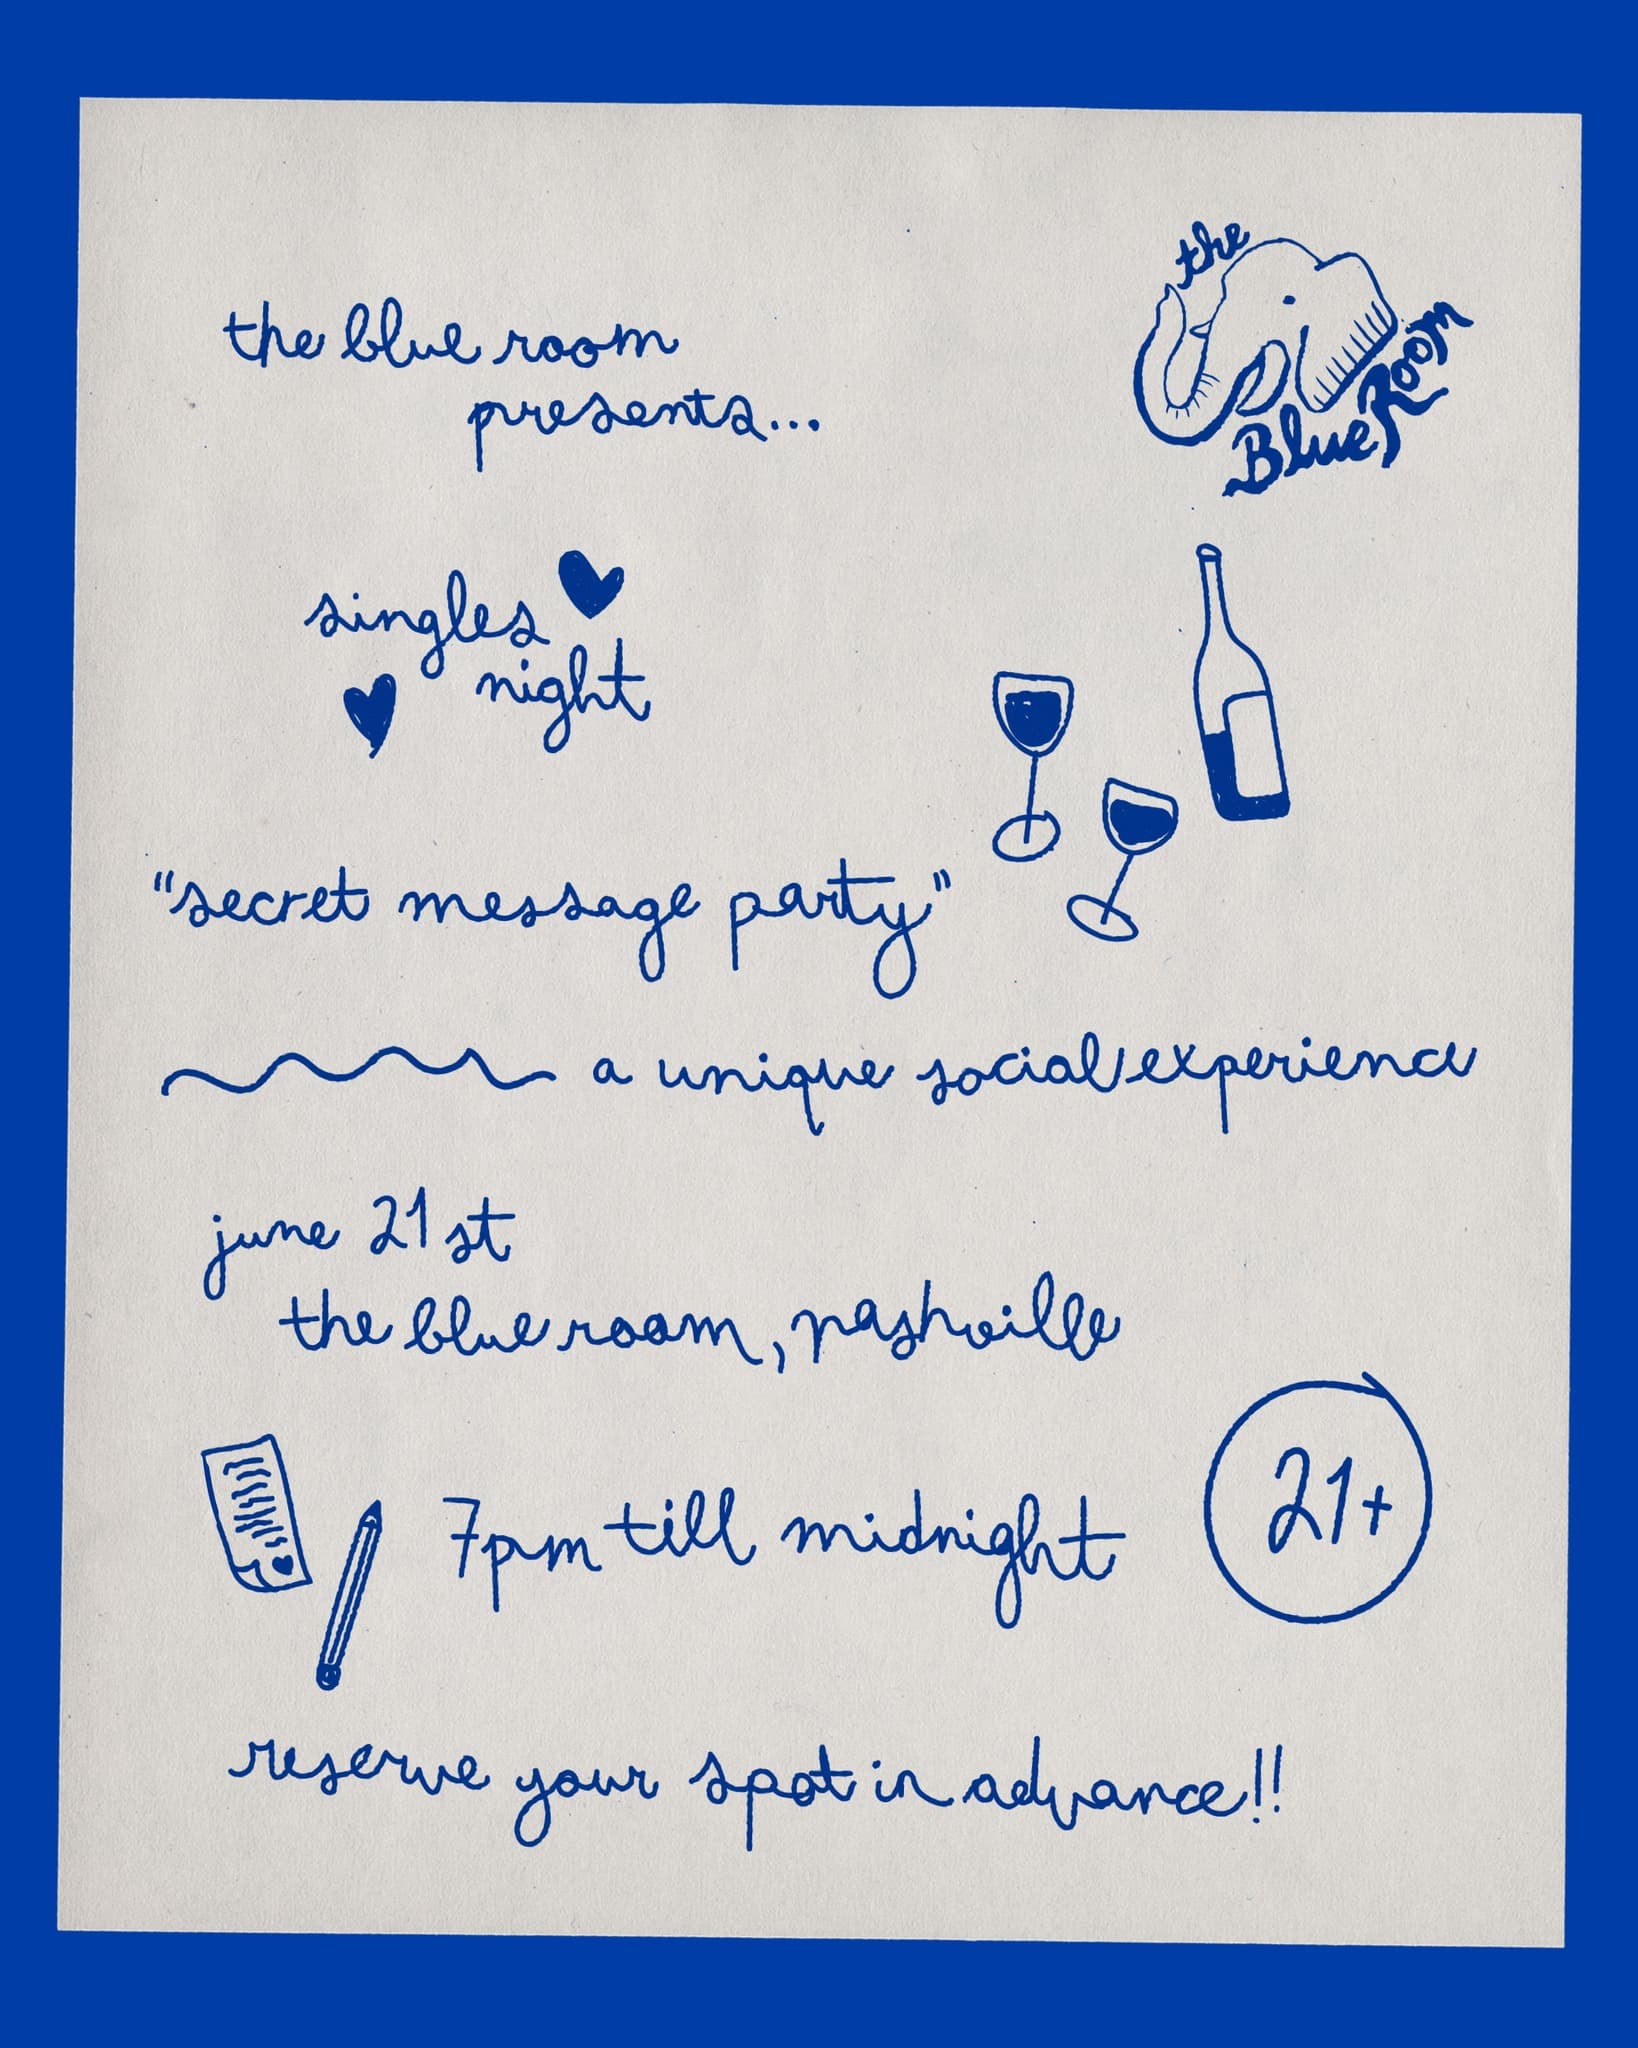 the blue room
presents...
the
Blue Room
singles
night
"secret message party"
a unique social experience
june 21st
the blue room, nashville
7pm till midnight
21+
reserve your spot in advance!!